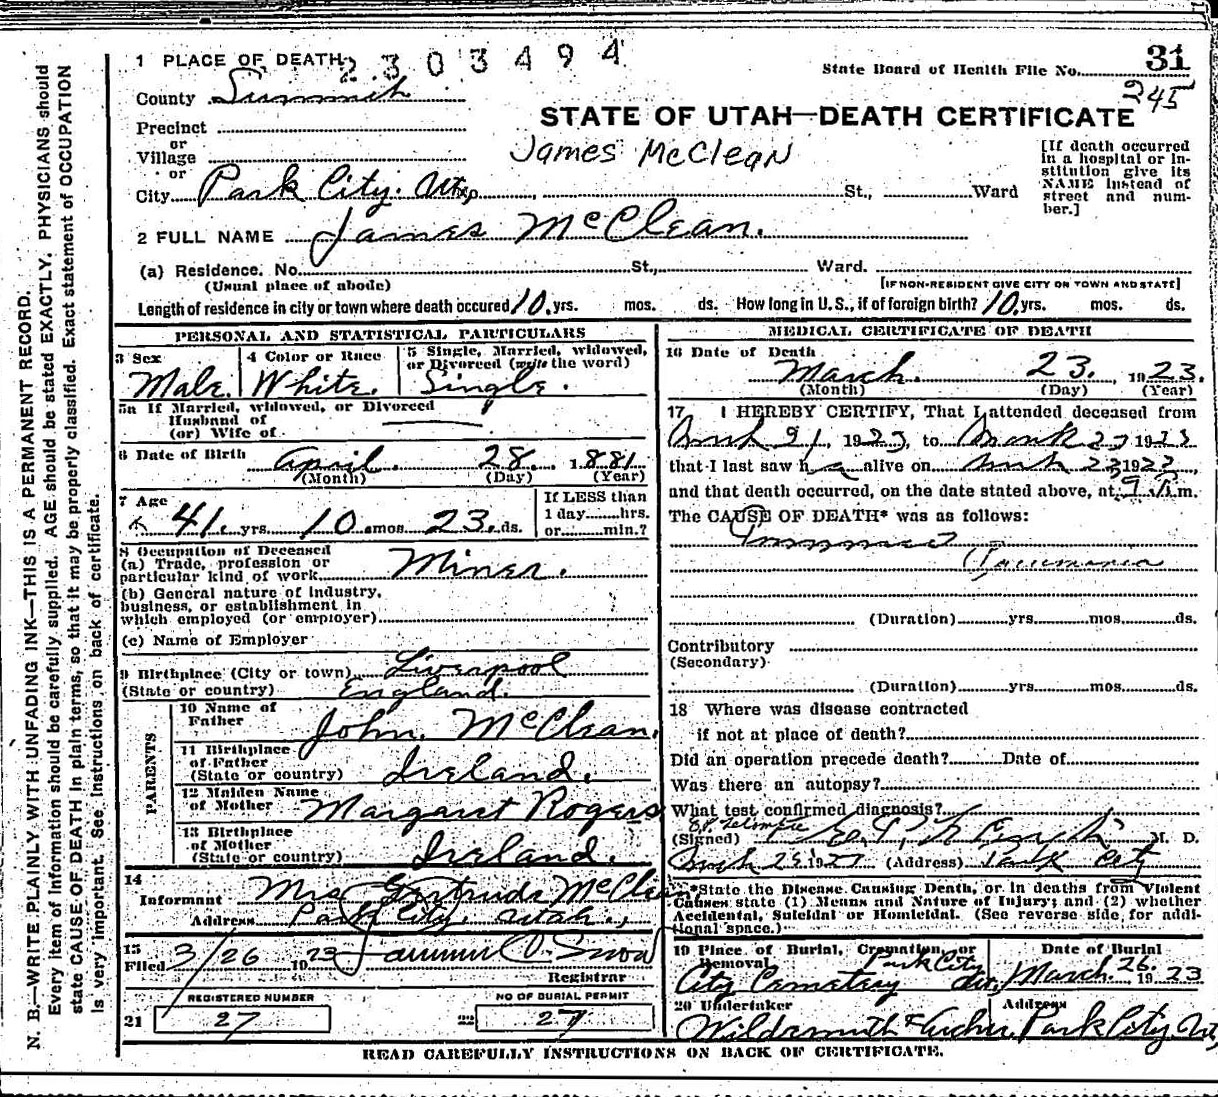 N. B.—WRITE PLAINLY WITH UNFADING INK—THIS IS A PERMANENT RECORD.
Every item of information should be carefully supplied. AGE should be stated EXACTLY. PHYSICIANS should
state CAUSE OF DEATH in plain terms, so that it may be properly classified. Exact statement of OCCUPATION
is very important. See instructions on back of certificate.
1 PLACE OF DEATH
2303494
State Board of Health File No. 31
245
County Summit
STATE OF UTAH—DEATH CERTIFICATE
Precinct
or
Village
James McClean
or
City Park City. Utah, St., Ward
[If death occurred
in a hospital or in-
stitution give its
NAME instead of
street and num-
ber.]
2 FULL NAME James McClean.
(a) Residence. No. St., Ward.
(Usual place of abode)
[IF NON-RESIDENT GIVE CITY OR TOWN AND STATE]
Length of residence in city or town where death occured 10. yrs. mos. ds. How long in U. S., if of foreign birth? 10. yrs. mos. ds.
PERSONAL AND STATISTICAL PARTICULARS
3 Sex
Male.
4 Color or Race
White.
5 Single, Married, widowed,
or Divorced (write the word)
Single.
5a If Married, widowed, or Divorced
Husband of
(or) Wife of
6 Date of Birth April. 28. 1881.
(Month) (Day) (Year)
7 Age
41. yrs. 10. mos. 23. ds.
If LESS than
1 day hrs.
or min.?
8 Occupation of Deceased
(a) Trade, profession or
particular kind of work Miner.
(b) General nature of industry,
business, or establishment in
which employed (or employer)
(c) Name of Employer
9 Birthplace (City or town) Liverpool
(State or country) England.
PARENTS
10 Name of
Father John. McClean.
11 Birthplace
of Father
(State or country) Ireland.
12 Maiden Name
of Mother Margaret Rogers
13 Birthplace
of Mother
(State or country) Ireland.
14
Informant Mrs Gertrude McClean
Address Park City, Utah.,
15
Filed 3/26 1923
Registrar
REGISTERED NUMBER
21 27
NO OF BURIAL PERMIT
22 27
MEDICAL CERTIFICATE OF DEATH
16 Date of Death
March. 23. 1923.
(Month) (Day) (Year)
17 I HEREBY CERTIFY, That I attended deceased from
1923, to 1923
that I last saw h alive on 192
and that death occurred, on the date stated above, at 9 m.
The CAUSE OF DEATH* was as follows:
Pneumonia
(Duration) yrs. mos. ds.
Contributory
(Secondary)
(Duration) yrs. mos. ds.
18 Where was disease contracted
if not at place of death?
Did an operation precede death? Date of
Was there an autopsy?
What test confirmed diagnosis?
(Signed) M. D.
(Address) Park City
*State the Disease Causing Death, or in deaths from Violent
Causes state (1) Means and Nature of Injury; and (2) whether
Accidental, Suicidal or Homicidal. (See reverse side for addi-
tional space.)
19 Place of Burial, Cremation, or
Removal Park City
City Cemetery
Date of Burial
March. 26. 1923
20 Undertaker
Wildermuth & Archer.
Address
Park City. Ut,
READ CAREFULLY INSTRUCTIONS ON BACK OF CERTIFICATE.